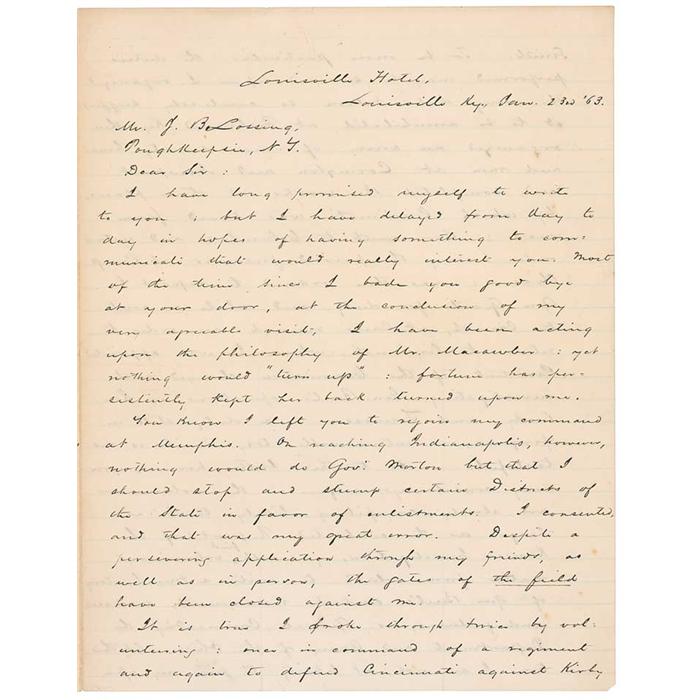 Louisville Hotel,
Louisville Ky., Jan. 23d '63.
Mr. J. B. Lossing,
Poughkeepsie, N.Y.
Dear Sir:
I have long promised myself to write
to you; but I have delayed from day to
day in hopes of having something to com-
municate that would really interest you. Most
of the time since I bade you good bye
at your door, at the conclusion of my
very agreeable visit, I have been acting
upon the philosophy of Mr. Macawber: yet
nothing would "turn up": fortune has per-
sistently kept her back turned upon me.
You know I left you to rejoin my command
at Memphis. On reaching Indianapolis, however,
nothing would do Gov. Morton but that I
should stop and stump certain Districts of
the State in favor of enlistments. I consented,
and that was my great error. Despite a
persevering application through my friends, as
well as in person, the gates of the field
have been closed against me.
It is true I broke through twice by vol-
unteering: once in command of a regiment
and again to defend Cincinnati against Kirby